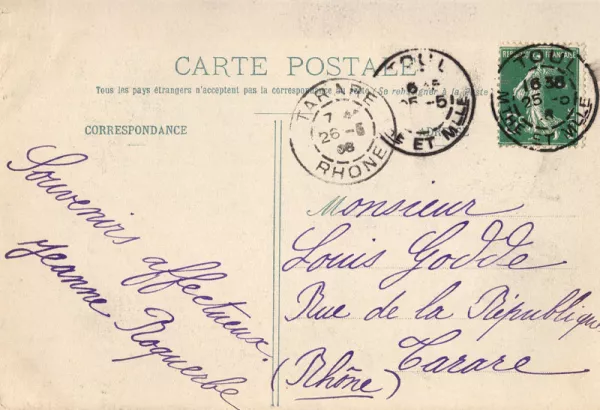 CARTE POSTALE
Tous les pays étrangers n'acceptent pas la correspondance au recto (Se renseigner à la Poste)
CORRESPONDANCE
TARARE
26 -5
RHONE
TOUL
25 -5
M LLE
TOUL
6 35
25
RÉPUBLIQUE FRANÇAISE
Souvenirs affectueux.
Jeanne
Monsieur
Louis Godde
Rue de la République
Tarare
(Rhône)